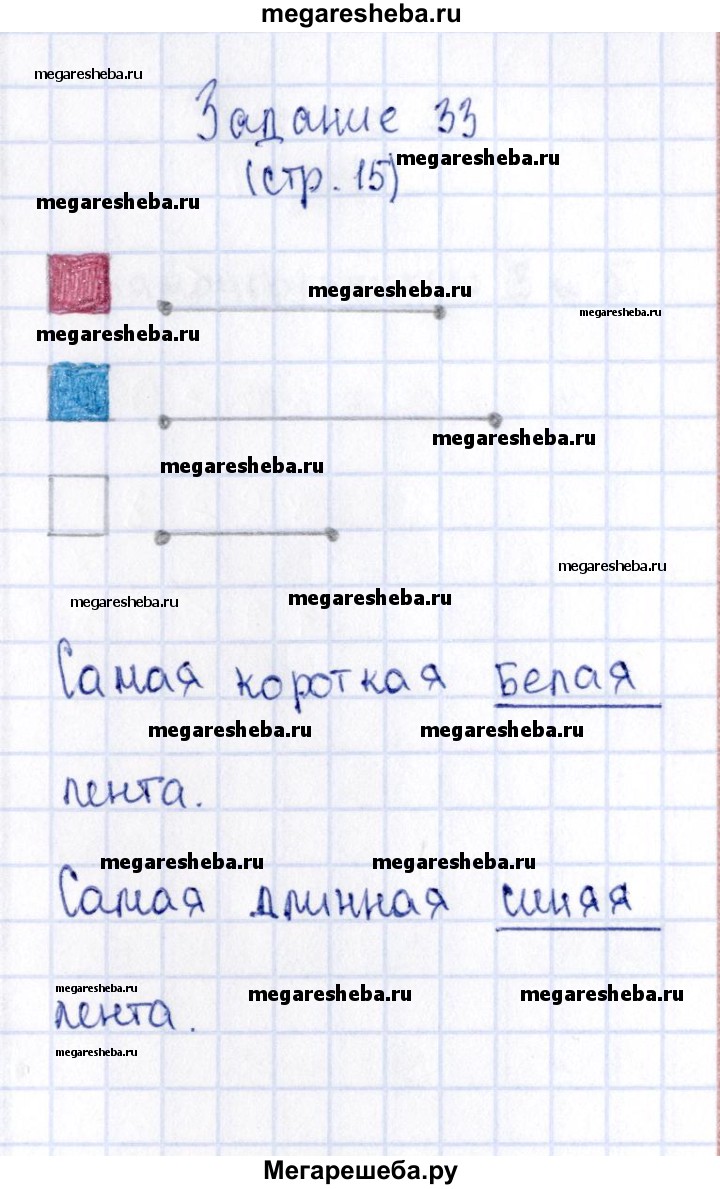 megaresheba.ru
megaresheba.ru
Задание 33
megaresheba.ru
(стр. 15)
megaresheba.ru
megaresheba.ru
megaresheba.ru
megaresheba.ru
megaresheba.ru
megaresheba.ru
megaresheba.ru
megaresheba.ru
megaresheba.ru
Самая короткая белая
megaresheba.ru megaresheba.ru
лента.
megaresheba.ru megaresheba.ru
Самая длинная синяя
megaresheba.ru
megaresheba.ru megaresheba.ru
лента.
megaresheba.ru
Мегарешеба.ру